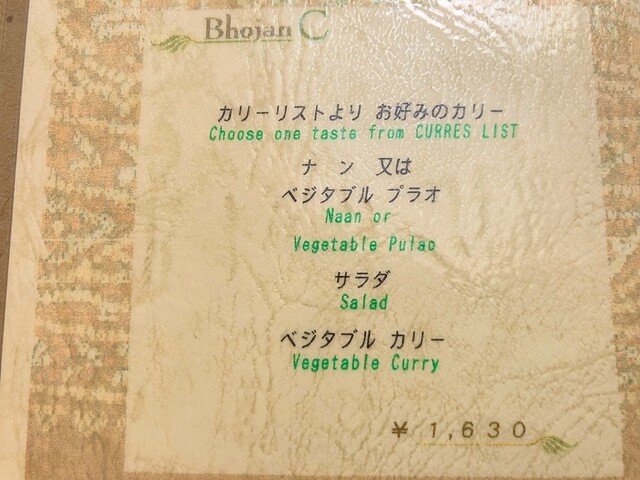 Bhojan C
カリーリストより お好みのカリー
Choose one taste from CURRES LIST
ナン 又は
ベジタブル プラオ
Naan or
Vegetable Pulao
サラダ
Salad
ベジタブル カリー
Vegetable Curry
¥ 1,630